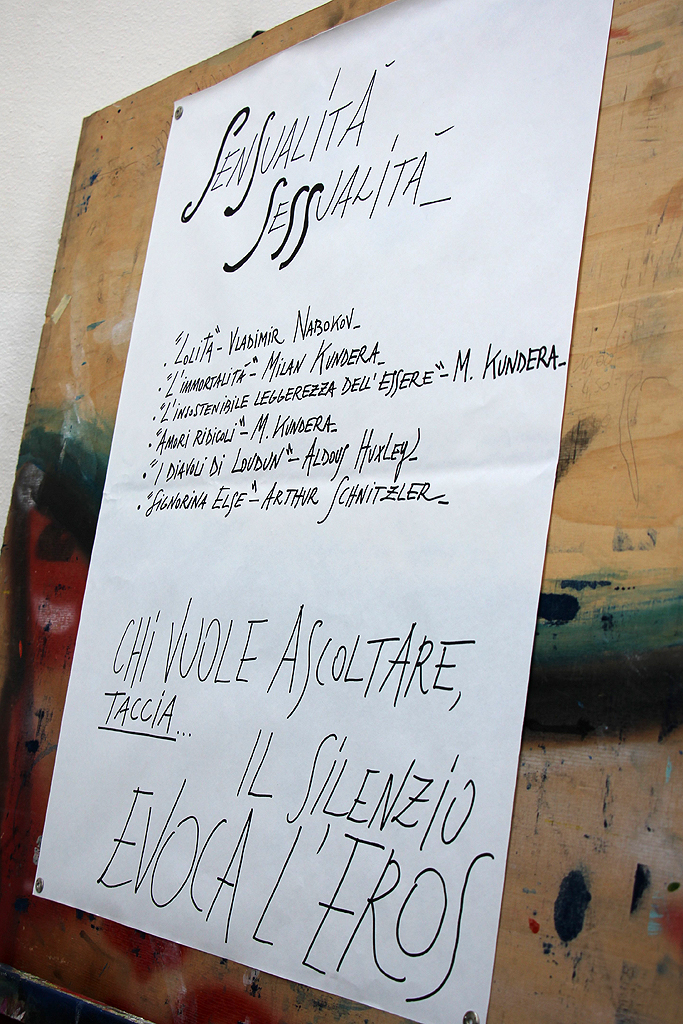 SENSUALITÀ
SESSUALITÀ_
. "LOLITA" - VLADIMIR NABOKOV_
. "L'IMMORTALITÀ" - MILAN KUNDERA_
. "L'INSOSTENIBILE LEGGEREZZA DELL'ESSERE" - M. KUNDERA_
. "AMORI RIDICOLI" - M. KUNDERA_
. "I DIAVOLI DI LOUDUN" - ALDOUS HUXLEY_
. "SIGNORINA ELSE" - ARTHUR SCHNITZLER_
CHI VUOLE ASCOLTARE,
TACCIA...
IL SILENZIO
EVOCA L'EROS